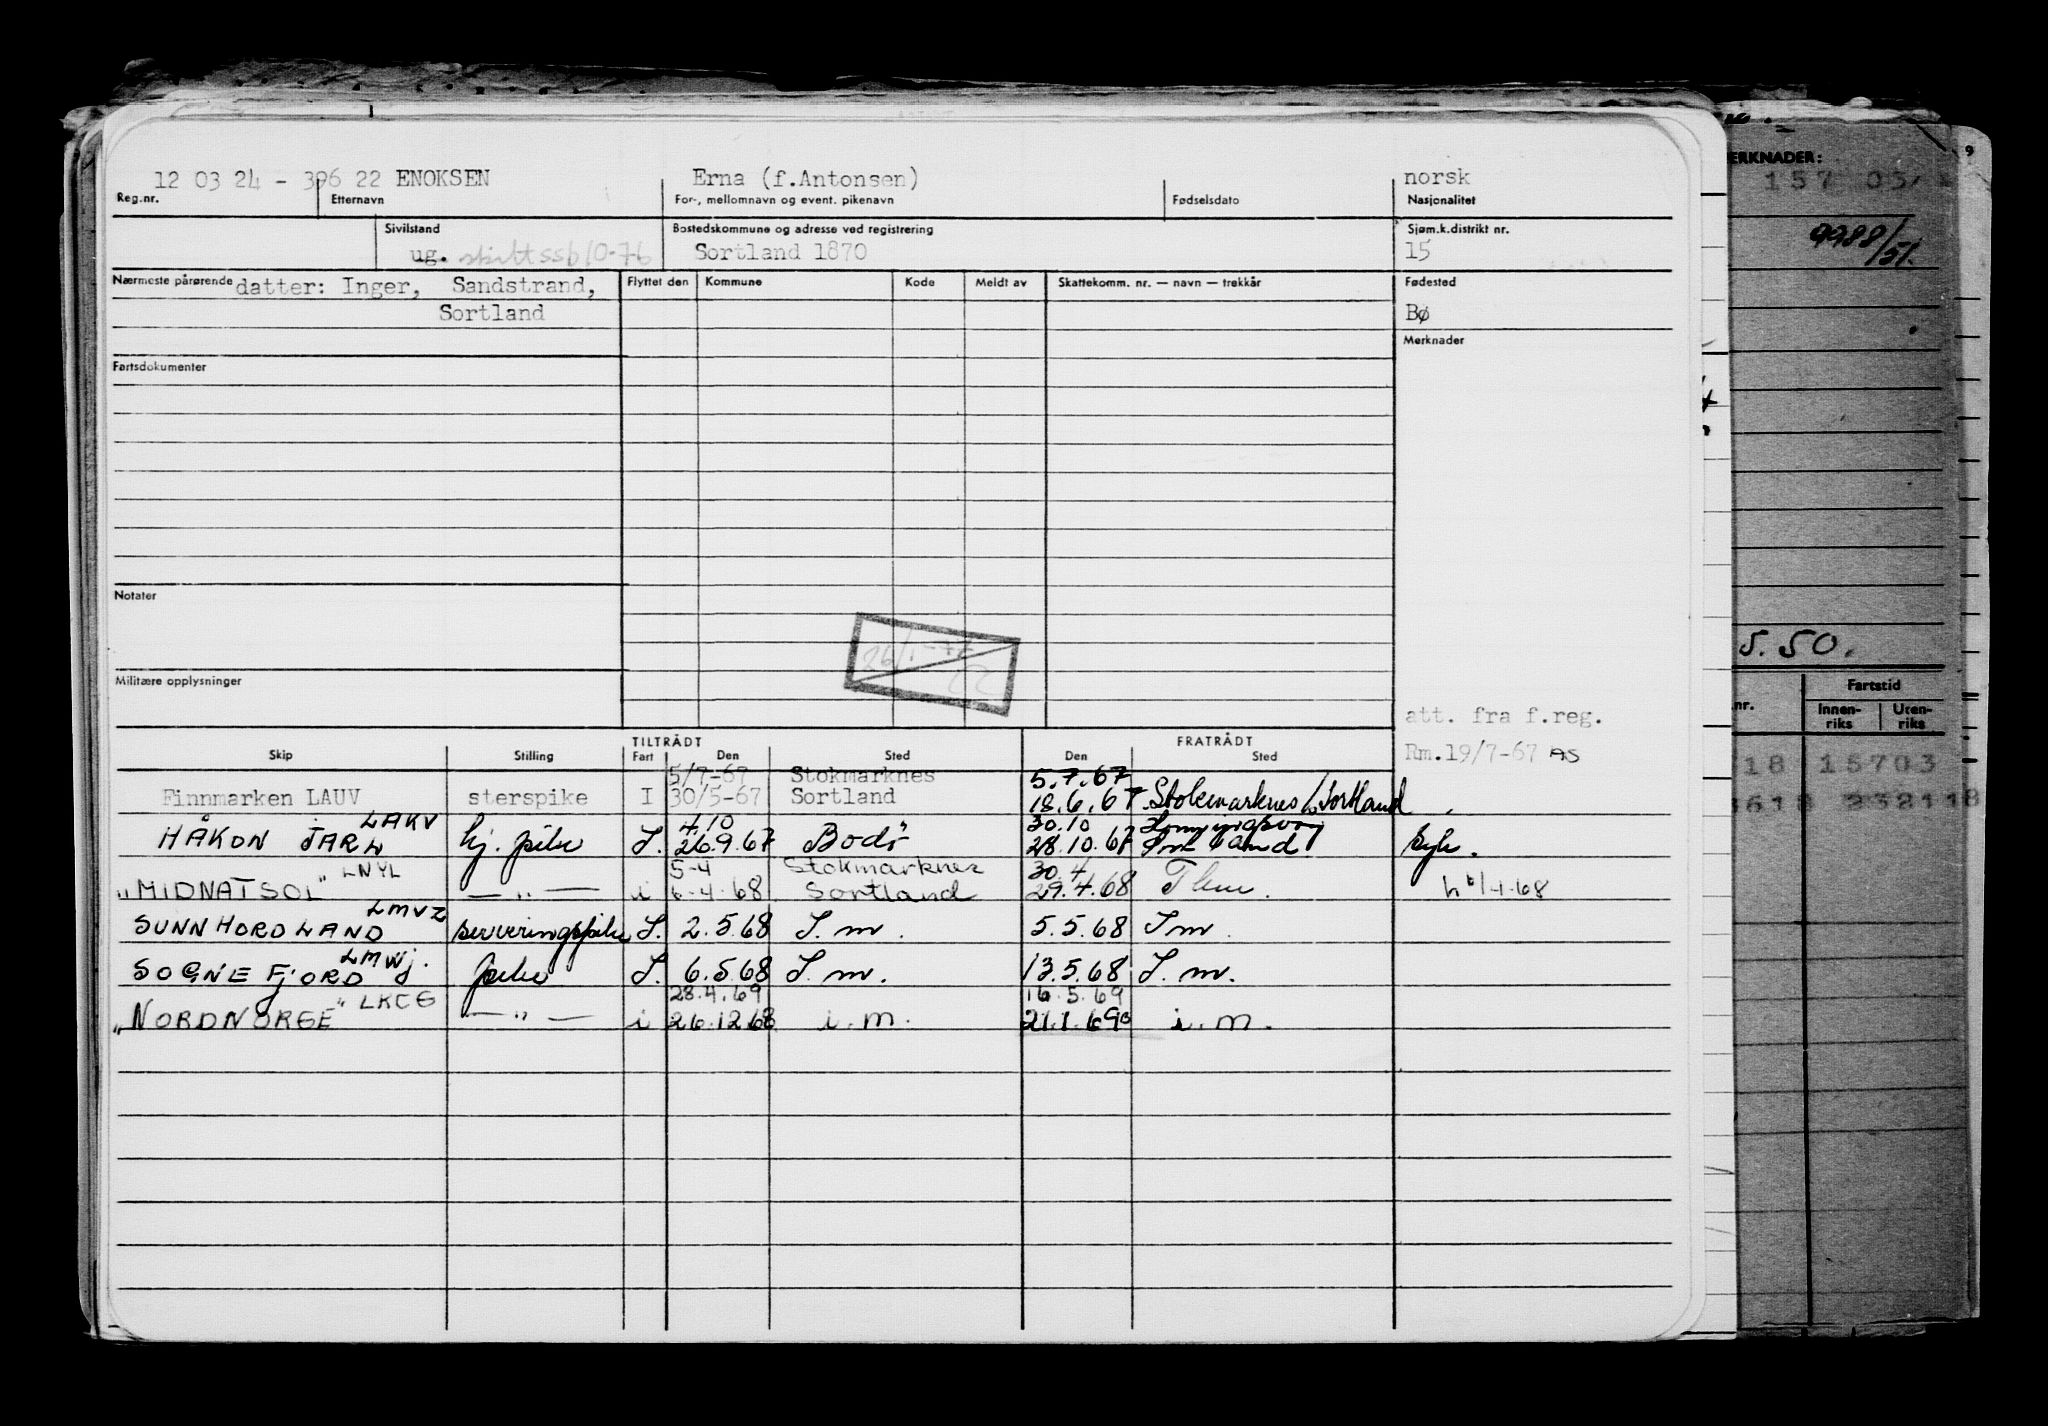 12 03 24 - 396 22 ENOKSEN Erna (f.Antonsen) norsk
Reg.nr. Etternavn For-, mellomnavn og event. pikenavn Fødselsdato Nasjonalitet
Sivilstand Bostedskommune og adresse ved registrering Sjøm.k.distrikt nr.
ug. skilt ssb 10-76 Sortland 1870 15
Nærmeste pårørende datter: Inger, Sandstrand, Flyttet den Kommune Kode Meldt av Skattekomm. nr. — navn — trekkår Fødested
Sortland Bø
Merknader
Fartsdokumenter
Notater
Militære opplysninger
att. fra f.reg.
TILTRÅDT FRATRÅDT
Skip Stilling Fart Den Sted Den Sted Rm.19/7-67 AS
5/7-67 Stokmarknes 5.7.67
Finnmarken LAUV sterspike I 30/5-67 Sortland 18.6.67 Stokmarknes/Sortland
LAKV 4/10 30.10
HÅKON JARL hj. pike I. 26.9.67 Bodø 28.10.67 Sortland syk.
LNYL 5-4 Stokmarknes 30.4
"MIDNATSOL" — " — i 6.4.68 Sortland 29.4.68 h
LMVZ
SUNNHORDLAND serveringspike I. 2.5.68 I.m. 5.5.68 I m.
LMWJ.
SOGNEFJORD pike I. 6.5.68 I.m. 13.5.68 I.m.
LKCG 28.4.69 16.5.69
"NORDNORGE" — " — i 26.12.68 i.m. 21.1.69 i.m.
MERKNADER:
157 03
9988/51.
5.50.
Fartstid
nr. Innen-riks Uten-riks
18 15703